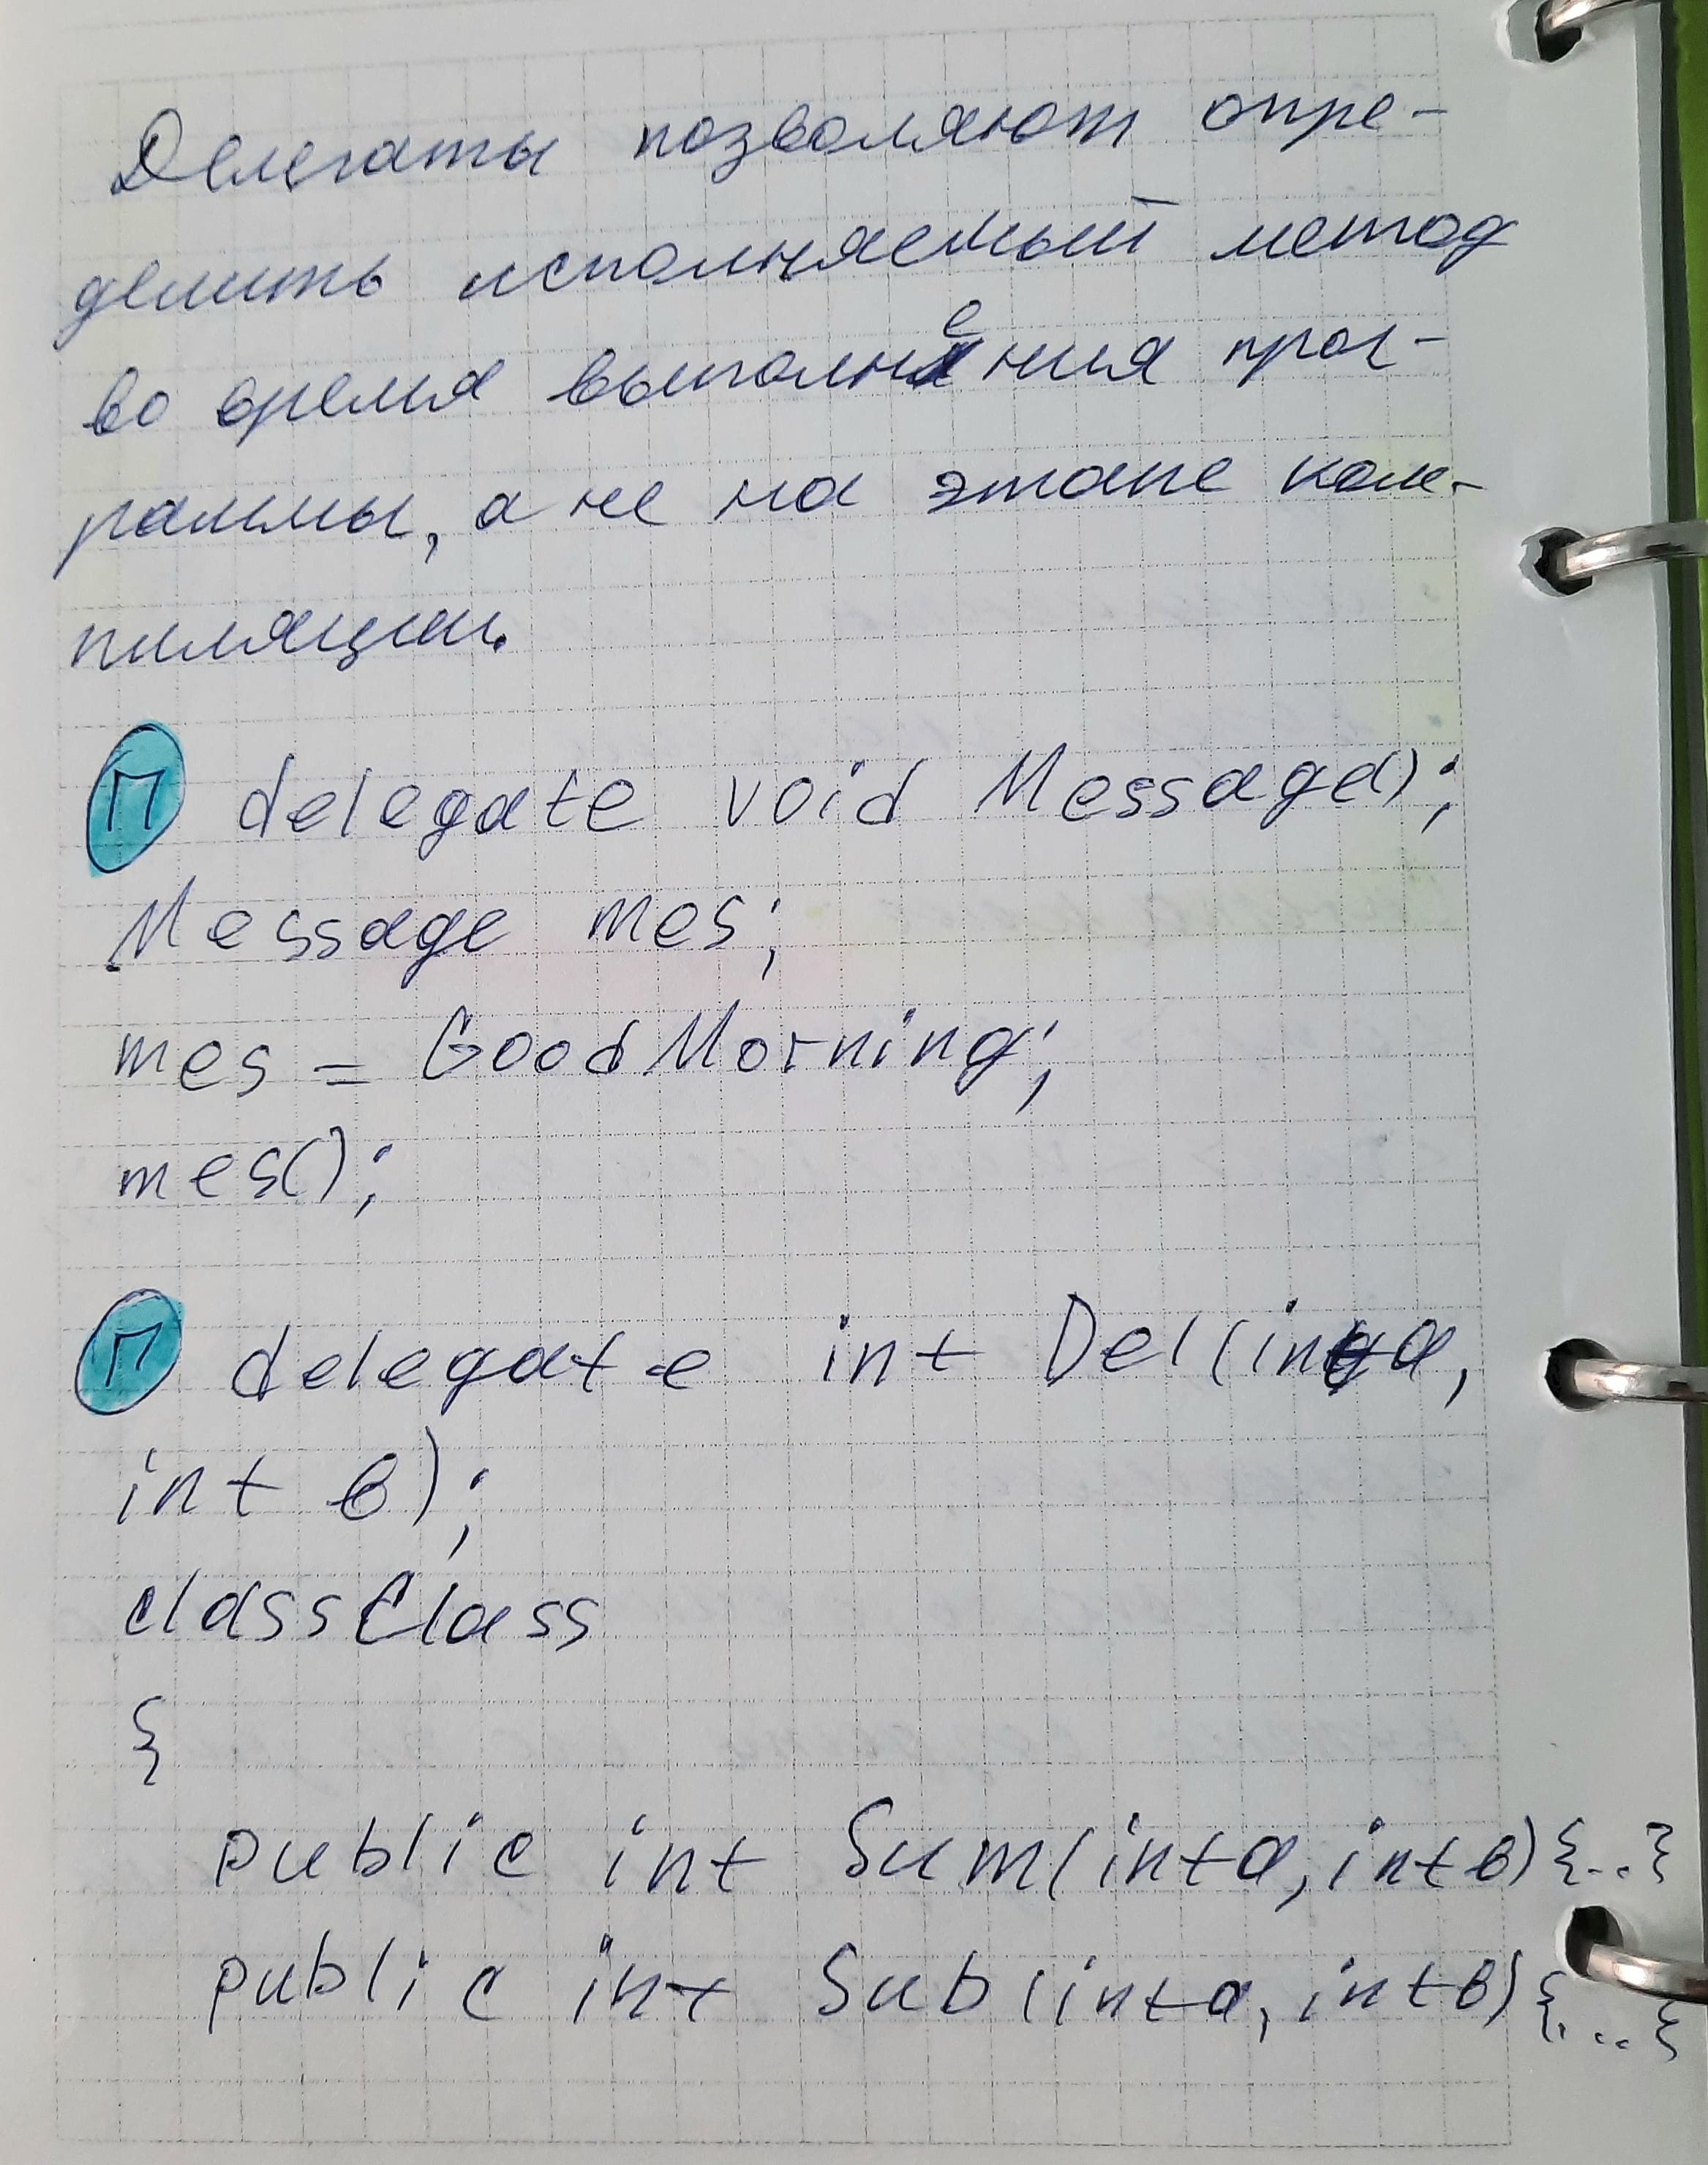 Делегаты позволяют опре-
делить исполняемый метод
во время выполнения прог-
раммы, а не на этапе ком-
пиляции.
П delegate void Message();
Message mes;
mes = GoodMorning;
mes();
П delegate int Del(int a,
int b);
class Class
{
public int Sum(int a, int b){...}
public int Sub(int a, int b){...}